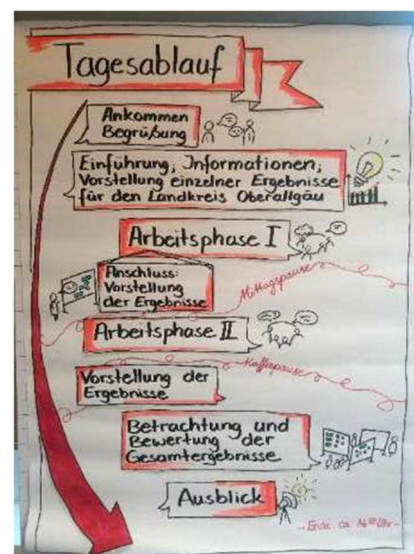 Tagesablauf
Ankommen
Begrüßung
Einführung, Informationen,
Vorstellung einzelner Ergebnisse
für den Landkreis Oberallgäu
Arbeitsphase I
Anschluss:
Vorstellung
der Ergebnisse
Mittagspause
Arbeitsphase II
Kaffeepause
Vorstellung der
Ergebnisse
Betrachtung und
Bewertung der
Gesamtergebnisse
Ausblick
- Ende ca. 16⁰⁰ Uhr -